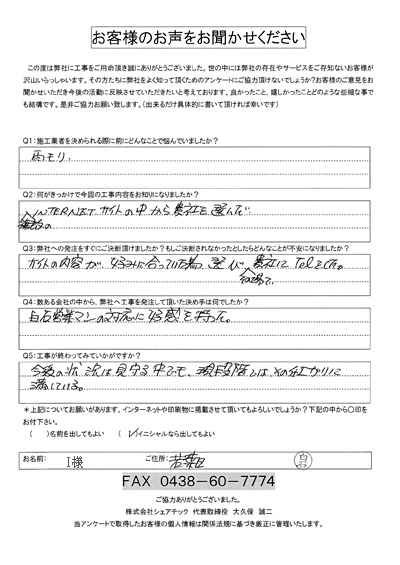 お客様のお声をお聞かせください
この度は弊社に工事をご用命頂き誠にありがとうございました。世の中には弊社の存在やサービスをご存知ないお客様が
沢山いらっしゃいます。その方たちに弊社をよく知って頂くためのアンケートにご協力頂けないでしょうか?お客様のご意見をお
聞かせいただき今後の活動に反映させていただきたいと考えております。良かったこと、嬉しかったことどのような些細な事で
も結構です。是非ご協力お願い致します。(出来るだけ具体的に書いて頂ければ幸いです)
Q1:施工業者を決められる際に前にどんなことで悩んでいましたか?
雨モリ.
Q2:何がきっかけで今回の工事内容をお知りになりましたか?
INTERNETサイトの中から貴社を選んで
複数の
Q3:弊社への発注をすぐにご決断頂けましたか?もしご決断されなかったとしたらどんなことが不安になりましたか?
サイトの内容が、好みに合っていた為、選び、貴社にTelをした。
その場で、
Q4:数ある会社の中から、弊社へ工事を発注して頂いた決め手は何でしたか?
白石営業マンの対応に好感を持って。
Q5:工事が終わってみていかがですか?
今後の状況は見守る中でも、現段階では、その仕上がりに
満している。
*上記についてお願いがあります。インターネットや印刷物に掲載させて頂いてもよろしいでしょうか?下記の中から〇印を
お付下さい。
( )名前を出してもよい (✓)イニシャルなら出してもよい
お名前: I様 ご住所: 若葉区 白石
FAX 0438-60-7774
ご協力ありがとうございました。
株式会社シェアテック 代表取締役 大久保 誠二
当アンケートで取得したお客様の個人情報は関係法規に基づき厳正に管理いたします。